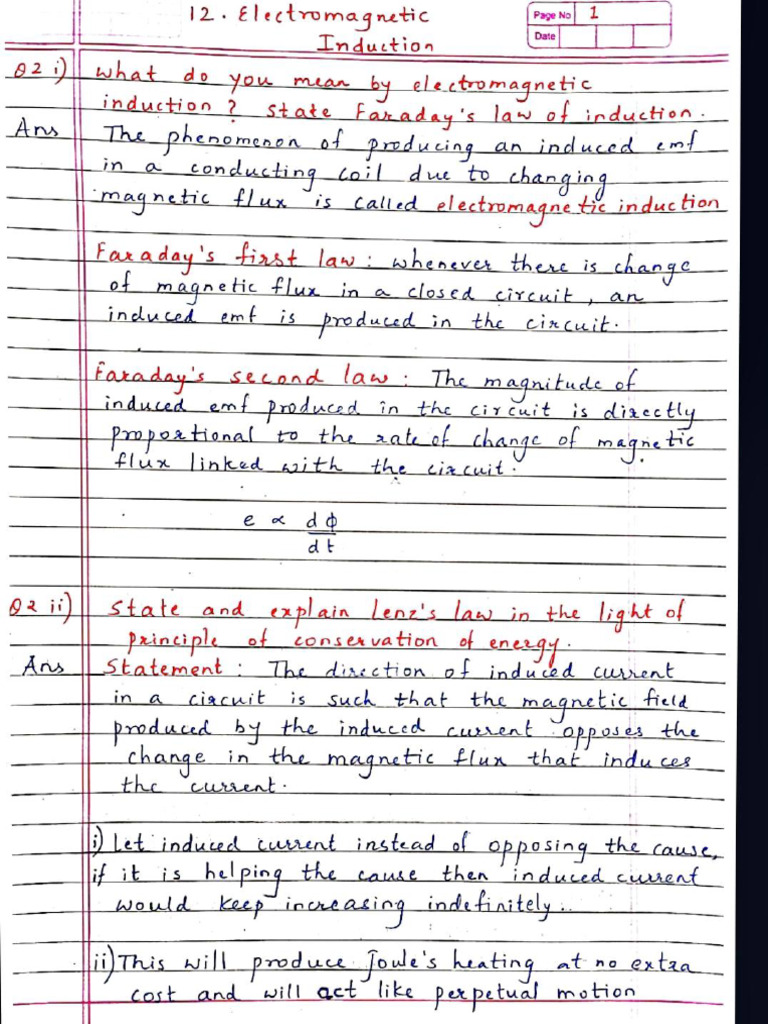 12. Electromagnetic
Induction
Page No 1
Date
Q2 i) What do you mean by electromagnetic
induction? State Faraday's law of induction.
Ans The phenomenon of producing an induced emf
in a conducting coil due to changing
magnetic flux is called electromagnetic induction
Faraday's first law: whenever there is change
of magnetic flux in a closed circuit, an
induced emf is produced in the circuit.
Faraday's second law: The magnitude of
induced emf produced in the circuit is directly
proportional to the rate of change of magnetic
flux linked with the circuit.
e ∝ dφ
dt
Q2 ii) State and explain Lenz's law in the light of
principle of conservation of energy.
Ans Statement: The direction of induced current
in a circuit is such that the magnetic field
produced by the induced current opposes the
change in the magnetic flux that induces
the current.
i) Let induced current instead of opposing the cause,
if it is helping the cause then induced current
would keep increasing indefinitely..
ii) This will produce Joule's heating at no extra
cost and will act like perpetual motion